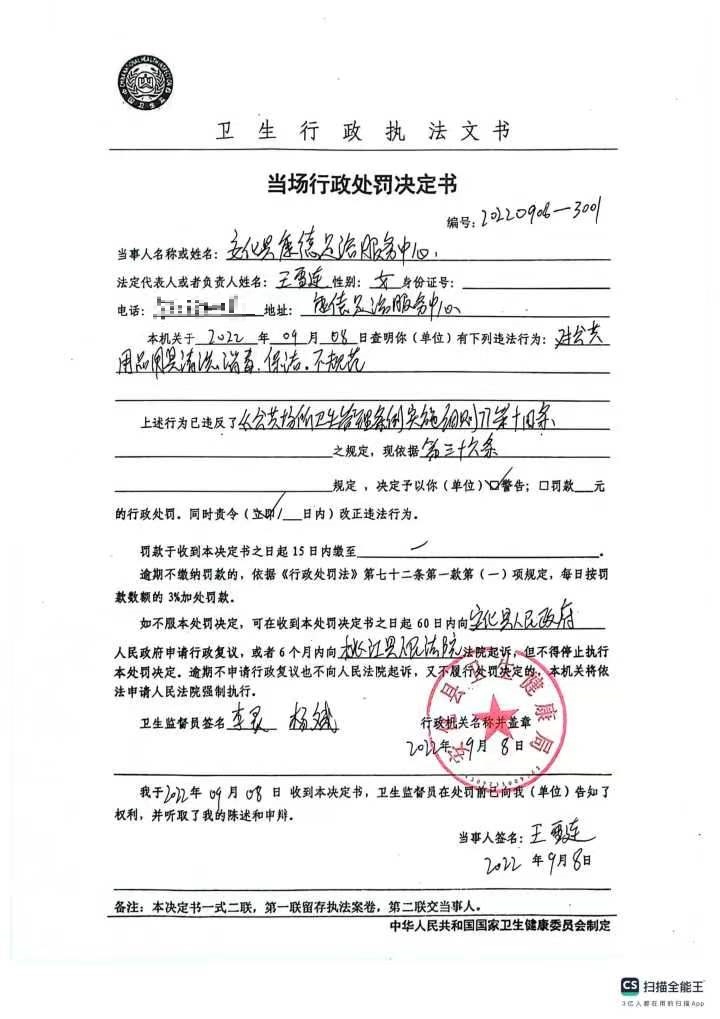 卫生行政执法文书
当场行政处罚决定书
编号:20220908-3001
当事人名称或姓名:安化县康德足浴服务中心
法定代表人或者负责人姓名:王雪连 性别:女 身份证号:
电话: 地址:康德足浴服务中心
本机关于 2022 年 09 月 08 日查明你(单位)有下列违法行为:对公共
用品用具清洗、消毒、保洁。不规范
上述行为已违反了《公共场所卫生管理条例实施细则》第十四条
之规定,现依据 第三十六条
规定,决定予以你(单位)☑警告;口罚款 元
的行政处罚。同时责令(立即/ 日内)改正违法行为。
罚款于收到本决定书之日起15日内缴至 — 。
逾期不缴纳罚款的,依据《行政处罚法》第七十二条第一款第(一)项规定,每日按罚
款数额的3%加处罚款。
如不服本处罚决定,可在收到本处罚决定书之日起60日内向安化县人民政府
人民政府申请行政复议,或者6个月内向桃江县人民法院法院起诉,但不得停止执行
本处罚决定。逾期不申请行政复议也不向人民法院起诉,又不履行处罚决定的,本机关将依
法申请人民法院强制执行。
卫生监督员签名 杨斌 行政机关名称并盖章
2022年9月8日
安化县卫生健康局
我于2022年09月08日收到本决定书,卫生监督员在处罚前已向我(单位)告知了
权利,并听取了我的陈述和申辩。
当事人签名:王雪连
2022年9月8日
备注:本决定书一式二联,第一联留存执法案卷,第二联交当事人。
中华人民共和国国家卫生健康委员会制定
CS 扫描全能王
3亿人都在用的扫描App